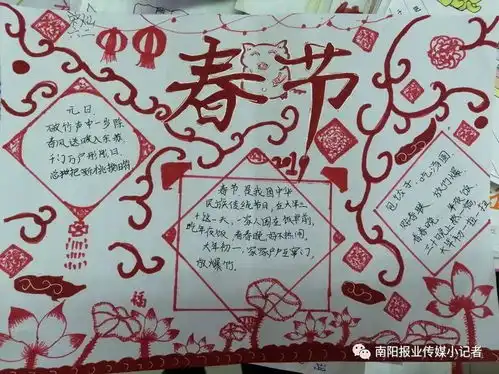 春节
2019
元日
爆竹声中一岁除
春风送暖入屠苏
千门万户曈曈日
总把新桃换旧符
春节是我国中华
民族传统节日,在大年三
十这一天,一家人围在饭桌前,
吃年夜饭,看春晚,好不热闹。
大年初一,家家户户串门,
放爆竹。
包饺子,吃汤圆
迎春联,放灯爆
看春晚,年夜饭
三十晚上
大年初一
福
南阳报业传媒小记者